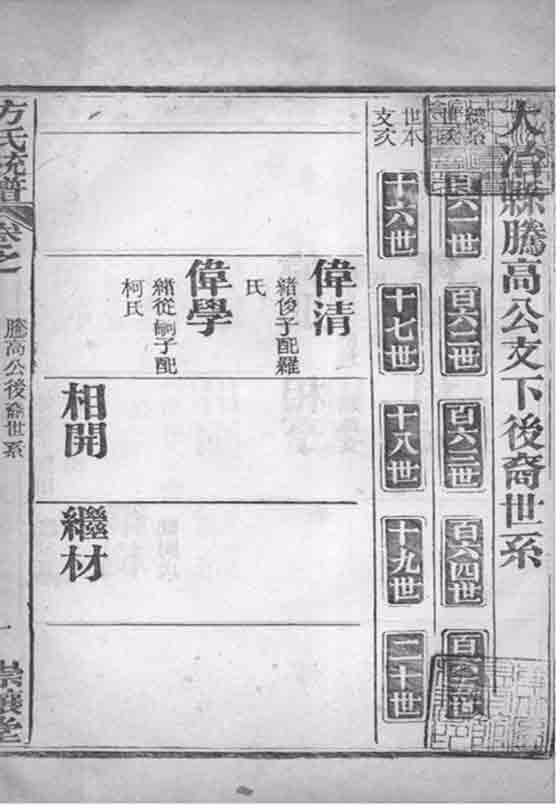 大冶縣騰高公支下後裔世系
百六一世
百六二世
百六三世
百六四世
世本
支次
十六世
十七世
十八世
十九世
二十世
偉清
緒俊子配羅
氏
偉學
緒從嗣子配
柯氏
相開
繼材
方氏統譜
卷之
騰高公後裔世系
一
崇讓堂